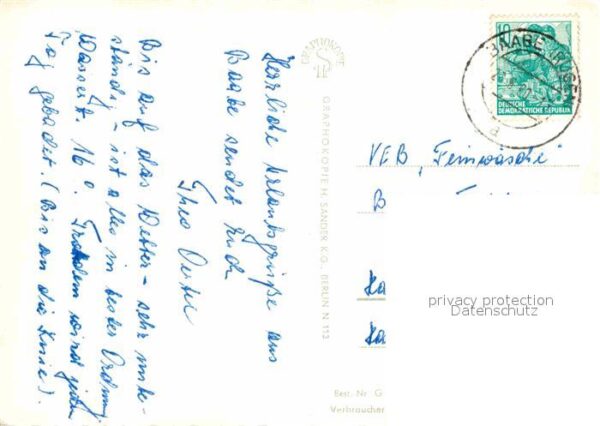 Herrliche Urlaubsgrüße aus
Baabe sendet Euch
Theo
Bis auf das Wetter – sehr unbe-
ständig – ist alles in bester Ordnung.
Wassert. 16°. Trotzdem wird jeden
Tag gebadet. (Bis an die Knie).
GRAPHOKOPIE
GRAPHOKOPIE H. SANDER K.G., BERLIN N 113
10
DEUTSCHE
DEMOKRATISCHE REPUBLIK
BAABE (RÜGEN)
a
VEB „Feinwäsche"
B
Ka
Ka
privacy protection
Datenschutz
Best. Nr. G
Verbraucher